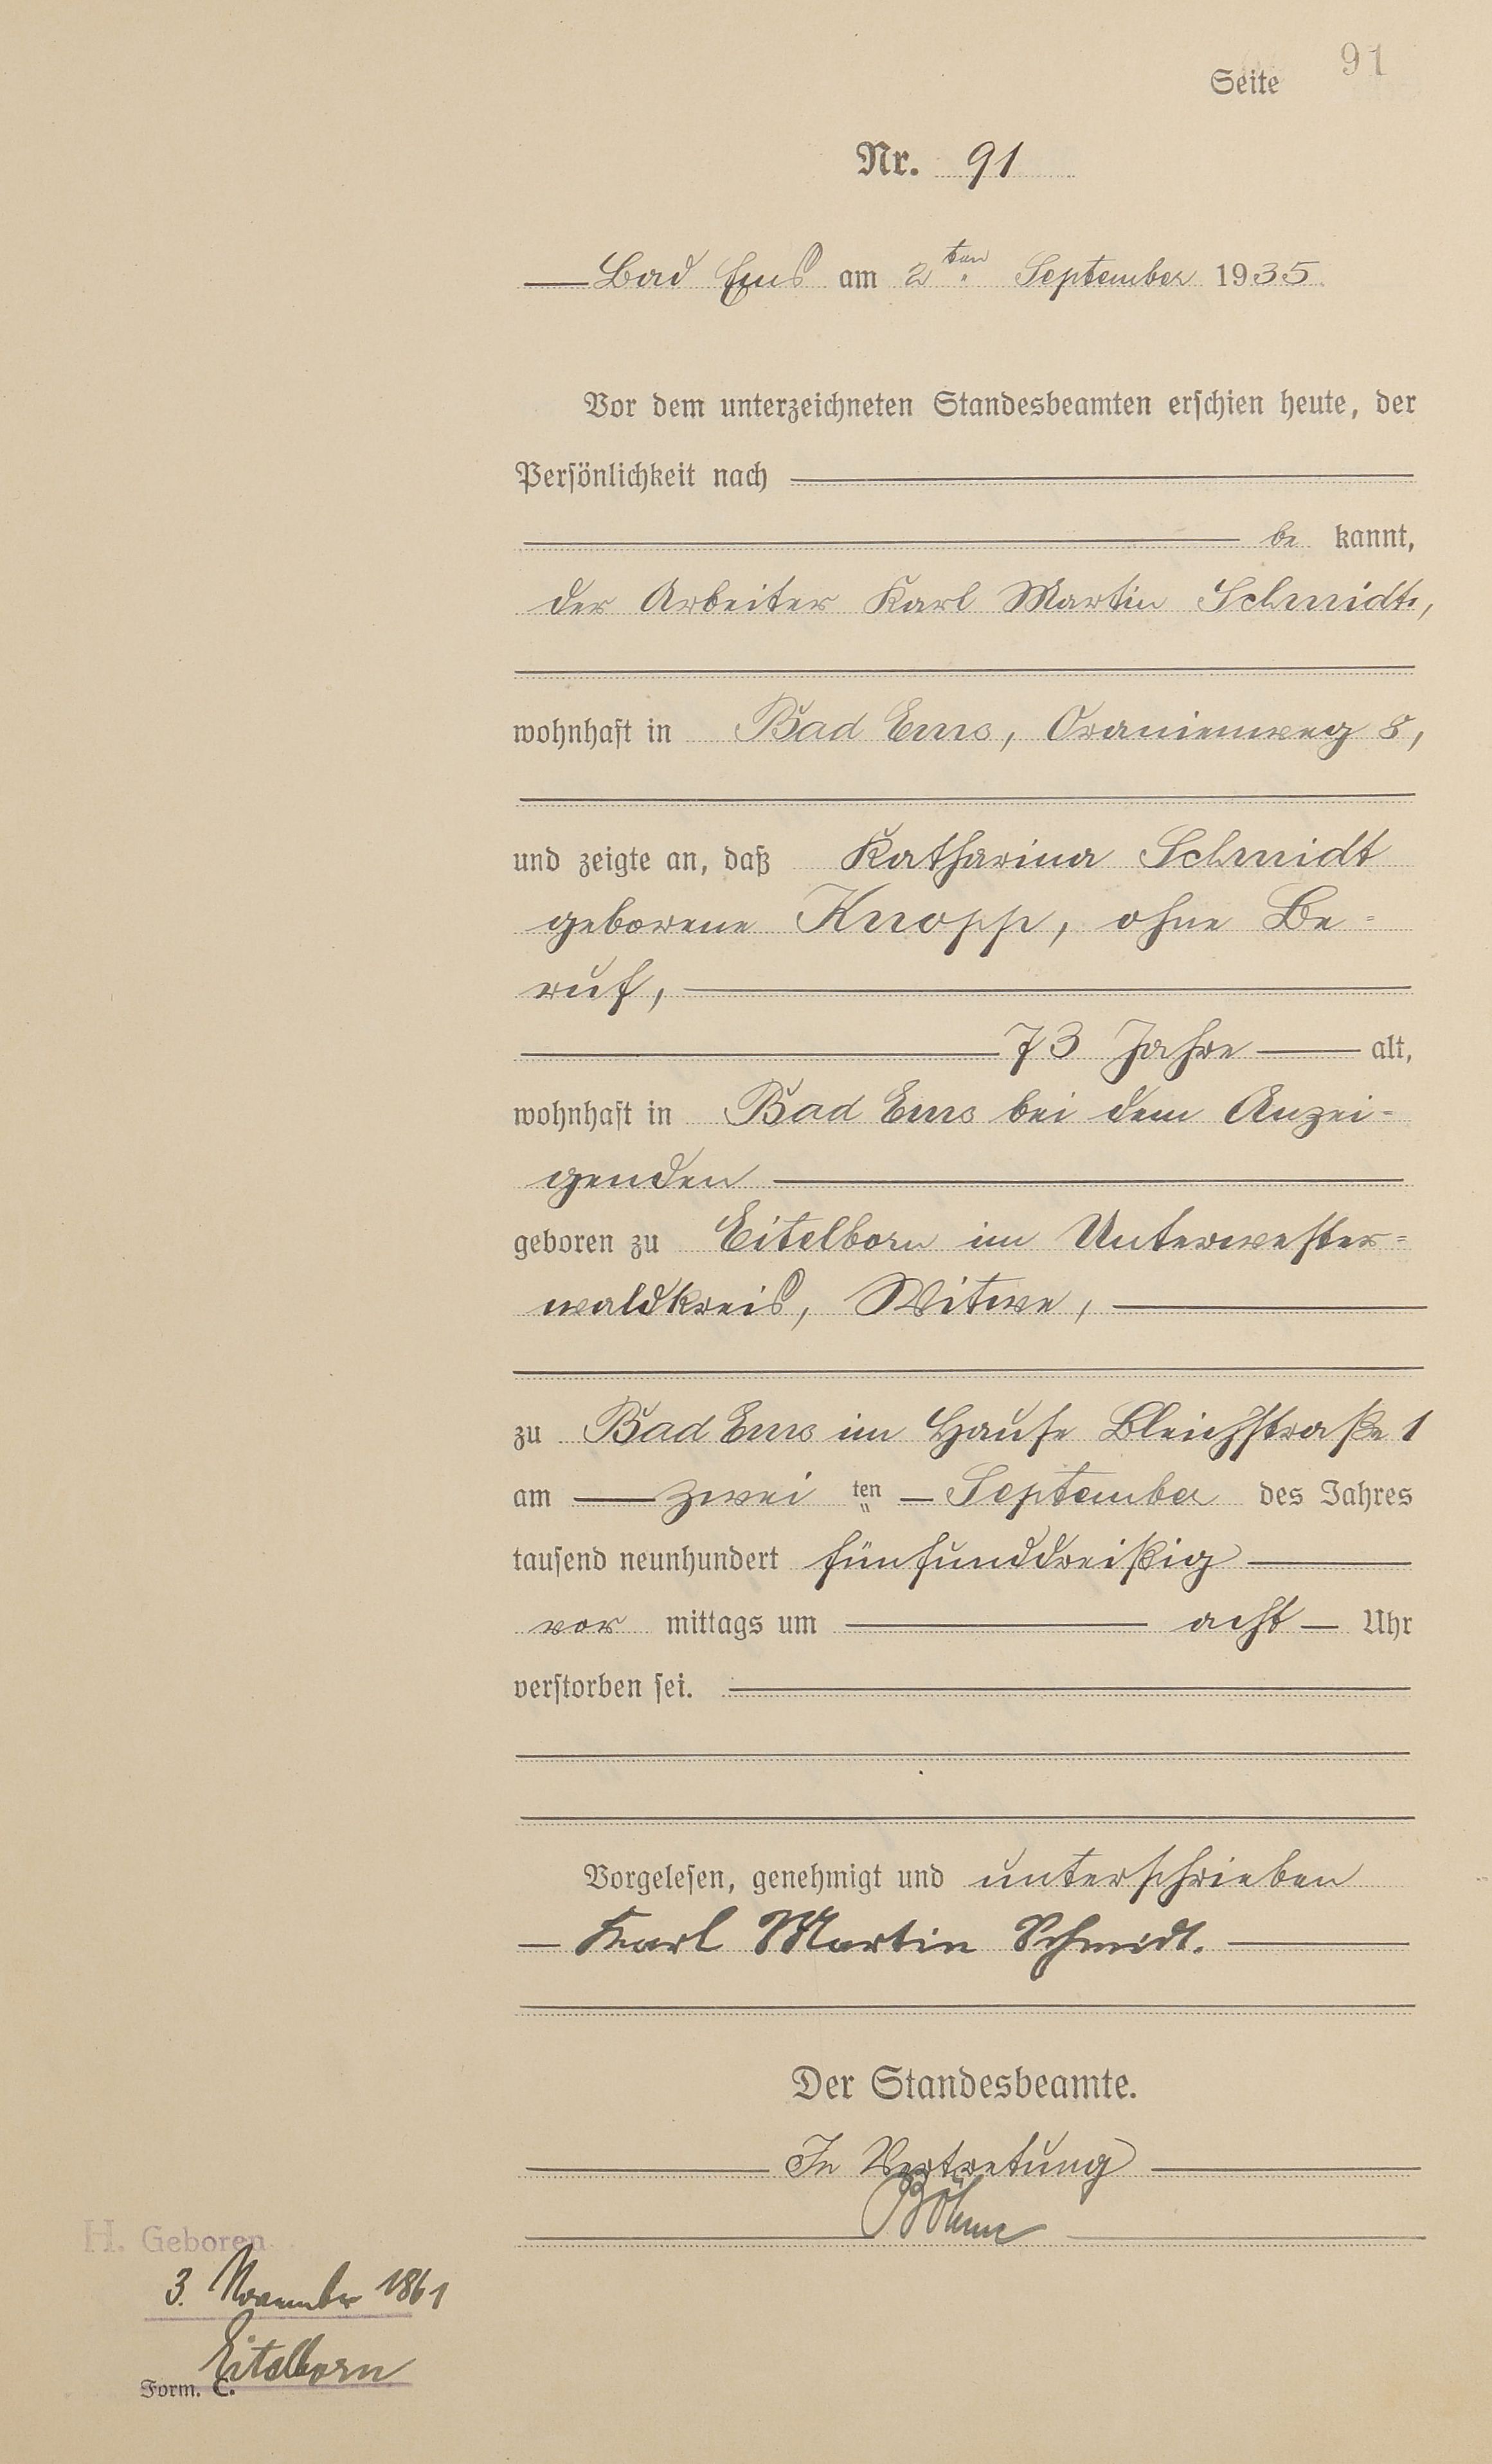 Seite 91
Nr. 91
Bad Ems am 2ten September 1935.
Vor dem unterzeichneten Standesbeamten erschien heute, der
Persönlichkeit nach
be kannt,
der Arbeiter Karl Martin Schmidt,
wohnhaft in Bad Ems, Oranienweg 8,
und zeigte an, daß Katharina Schmidt
geborene Knopp, ohne Be=
ruf,
73 Jahre alt,
wohnhaft in Bad Ems bei dem Anzei=
genden
geboren zu Eitelborn im Unterwester=
waldkreis, Witwe,
zu Bad Ems im Hause Bleichstraße 1
am zwei ten September des Jahres
tausend neunhundert fünfunddreißig
vor mittags um acht Uhr
verstorben sei.
Vorgelesen, genehmigt und unterschrieben
Karl Martin Schmidt.
Der Standesbeamte.
In Vertretung
Böhme
H. Geboren
3. November 1861
Eitelborn
Form. C.